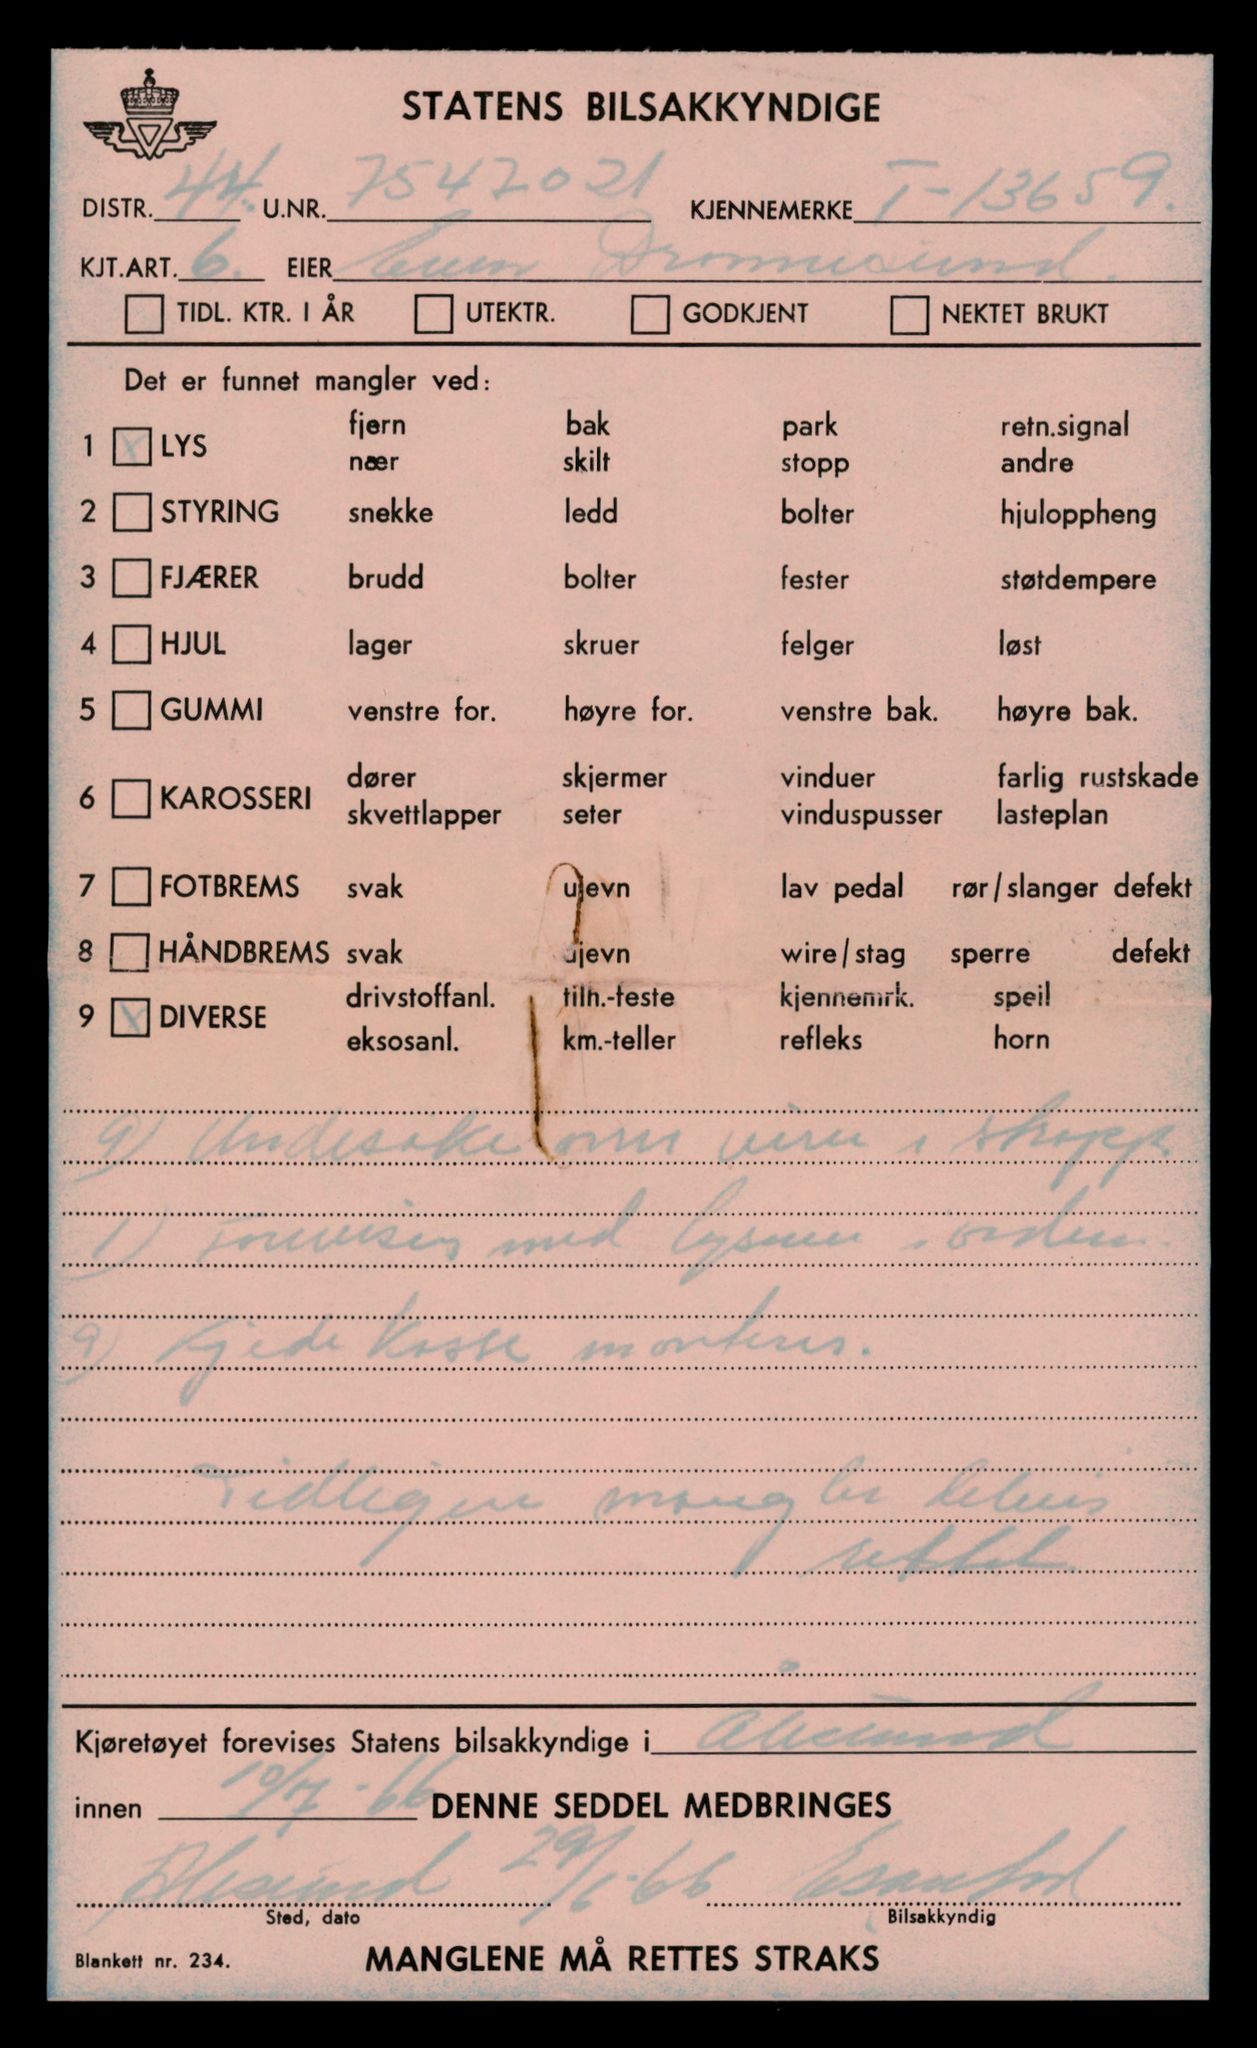 STATENS BILSAKKYNDIGE
DISTR. 44. U.NR. 7547021 KJENNEMERKE T-13659.
KJT.ART. 6. EIER
TIDL. KTR. I ÅR UTEKTR. GODKJENT NEKTET BRUKT
Det er funnet mangler ved:
1 X LYS fjern bak park retn.signal
nær skilt stopp andre
2 STYRING snekke ledd bolter hjuloppheng
3 FJÆRER brudd bolter fester støtdempere
4 HJUL lager skruer felger løst
5 GUMMI venstre for. høyre for. venstre bak. høyre bak.
6 KAROSSERI dører skjermer vinduer farlig rustskade
skvettlapper seter vinduspusser lasteplan
7 FOTBREMS svak ujevn lav pedal rør/slanger defekt
8 HÅNDBREMS svak ujevn wire/stag sperre defekt
9 X DIVERSE drivstoffanl. tilh.-feste kjennemrk. speil
eksosanl. km.-teller refleks horn
9) i
1) Forevises med lysene i orden.
9) Kjede kasse monteres.
Tidligere mangler delvis
rettet
Kjøretøyet forevises Statens bilsakkyndige i Ålesund
innen 10/7-66 DENNE SEDDEL MEDBRINGES
Ålesund 29/6-66
Sted, dato Bilsakkyndig
Blankett nr. 234. MANGLENE MÅ RETTES STRAKS